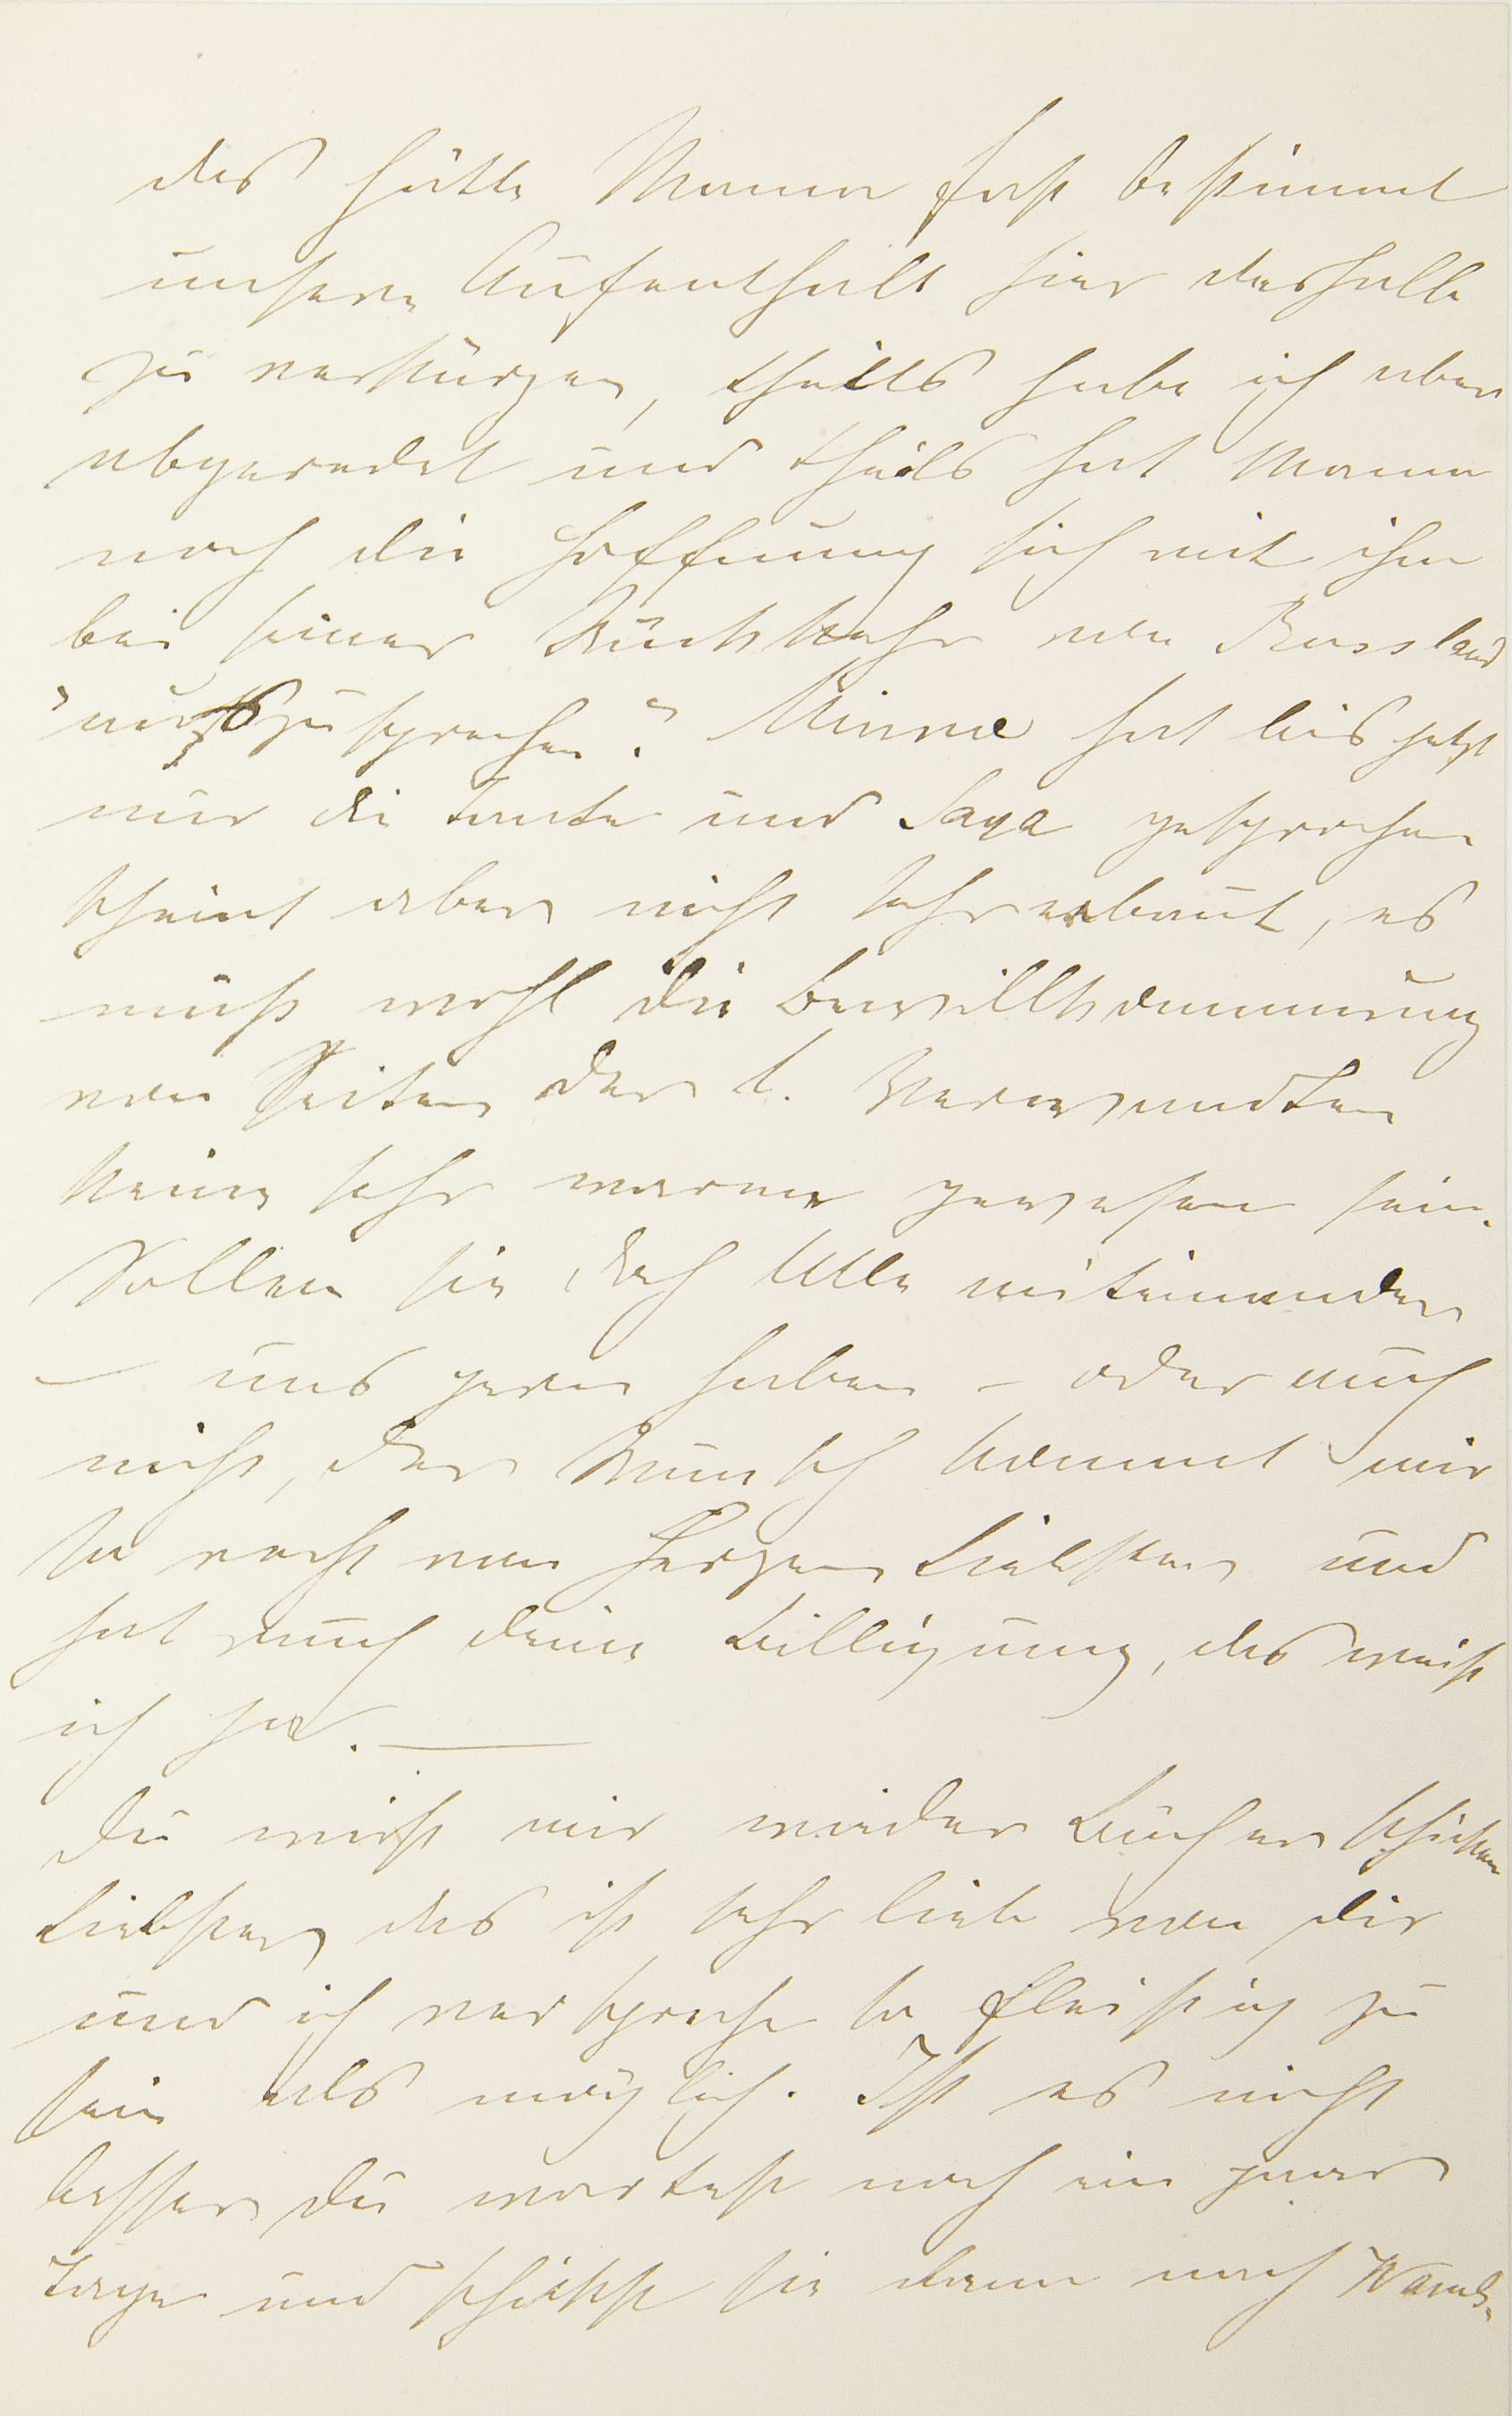 das hätte Mama fast bestimmt
unsern Aufenthalt hier deshalb
zu verkürzen, theils habe ich aber
abgeredet und theils hat Mama
noch die Hoffnung sich mit ihm
bei seiner Rückkehr von Russland
"auszusprechen". Minna hat bis jetzt
nur die Tante und Saga gesprochen
scheint aber nicht sehr erbaut, es
muß wohl die Bewillkommnung
von Seiten der l. Verwandten
keine sehr warme gewesen sein.
Sollen sie doch Alle miteinander
— uns gern haben – oder auch
nicht, der Wunsch kommt mir
so recht von Herzen Liebster und
hat auch deine Billigung, das weiß
ich ja. —
Du willst mir wieder Bücher schicken
Liebster, das ist sehr lieb von dir
und ich verspreche so fleißig zu
sein als möglich. Ist es nicht
besser du wartest noch ein paar
Tage und schickst sie dann nach Wands.